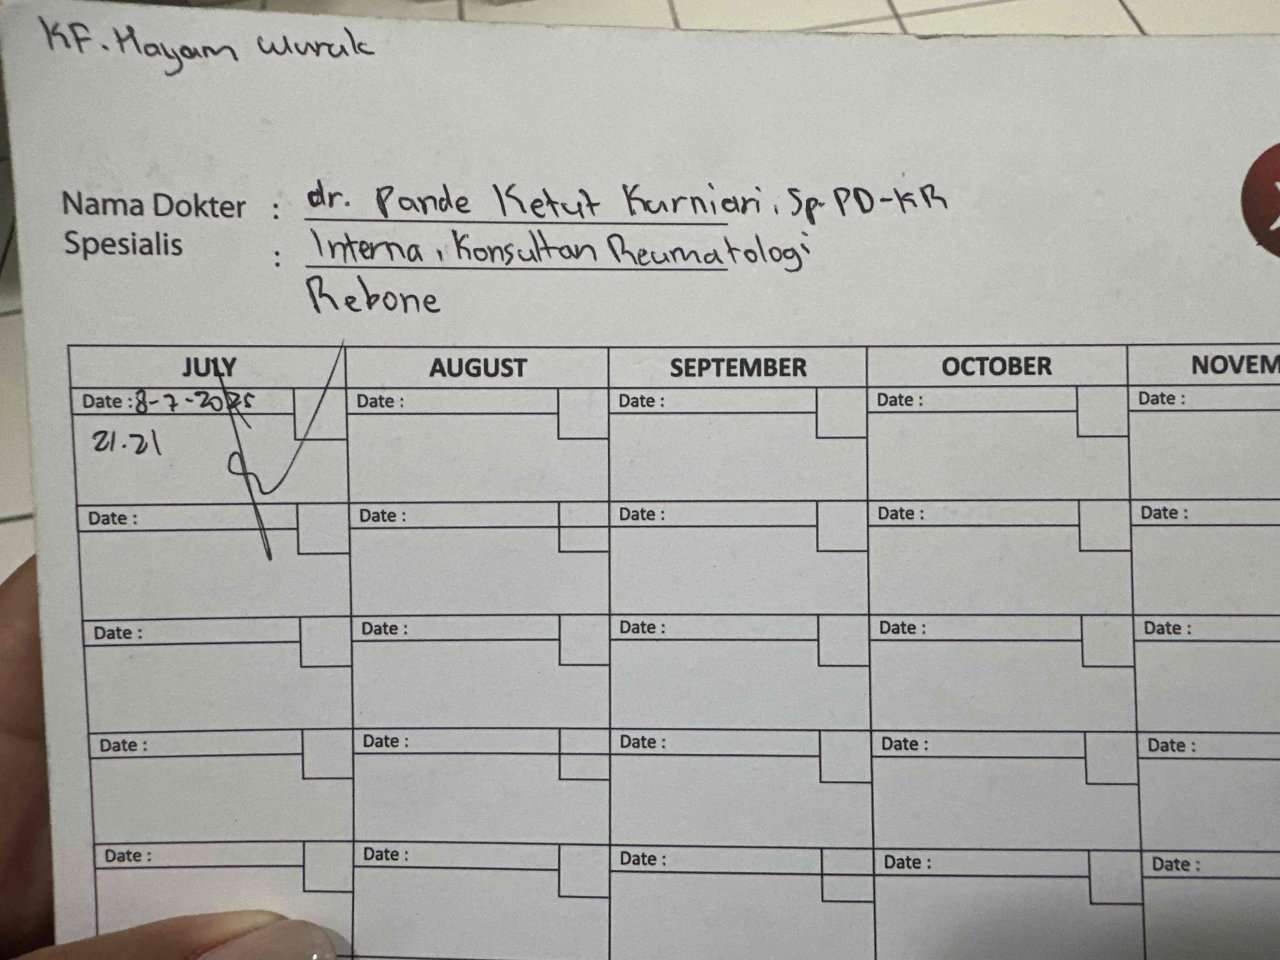 KF. Hayam Wuruk
Nama Dokter : dr. Pande Ketut Kurniari, Sp-PD-KR
Spesialis : Interna, Konsultan Reumatologi
Rebone
JULY AUGUST SEPTEMBER OCTOBER NOVEM
Date : 8-7-2025 Date : Date : Date : Date :
21.21
Date : Date : Date : Date : Date :
Date : Date : Date : Date : Date :
Date : Date : Date : Date : Date :
Date : Date : Date : Date : Date :